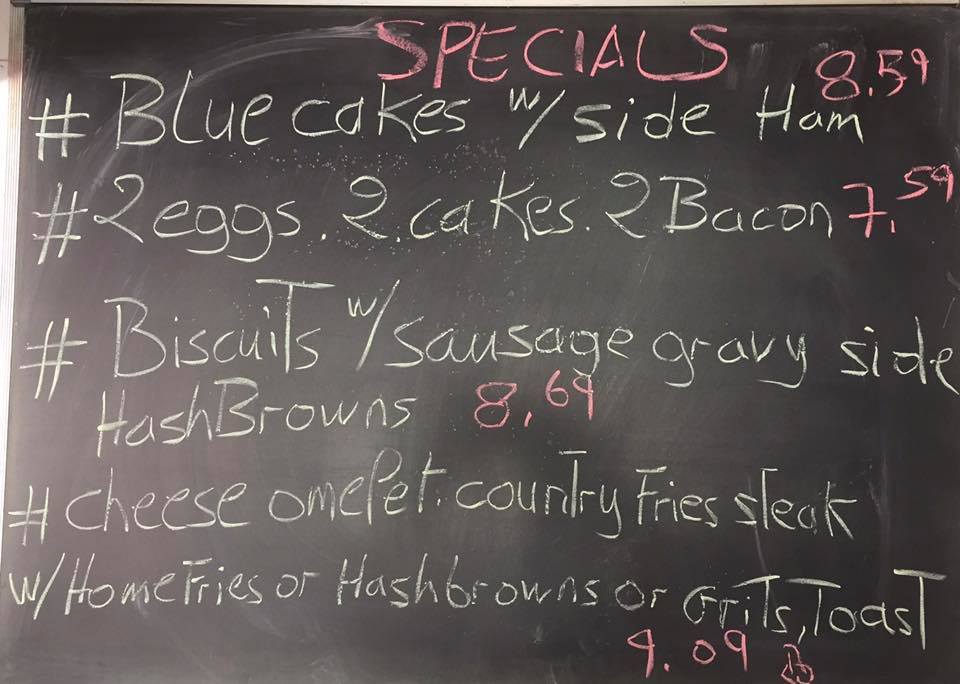 SPECIALS
# Blue cakes w/ side Ham 8.59
# 2 eggs. 2. cakes. 2 Bacon 7.59
# Biscuits w/ sausage gravy side
HashBrowns 8.69
# cheese omelet. country Fries steak
w/ Home Fries or Hashbrowns or Grits, Toast
9.09